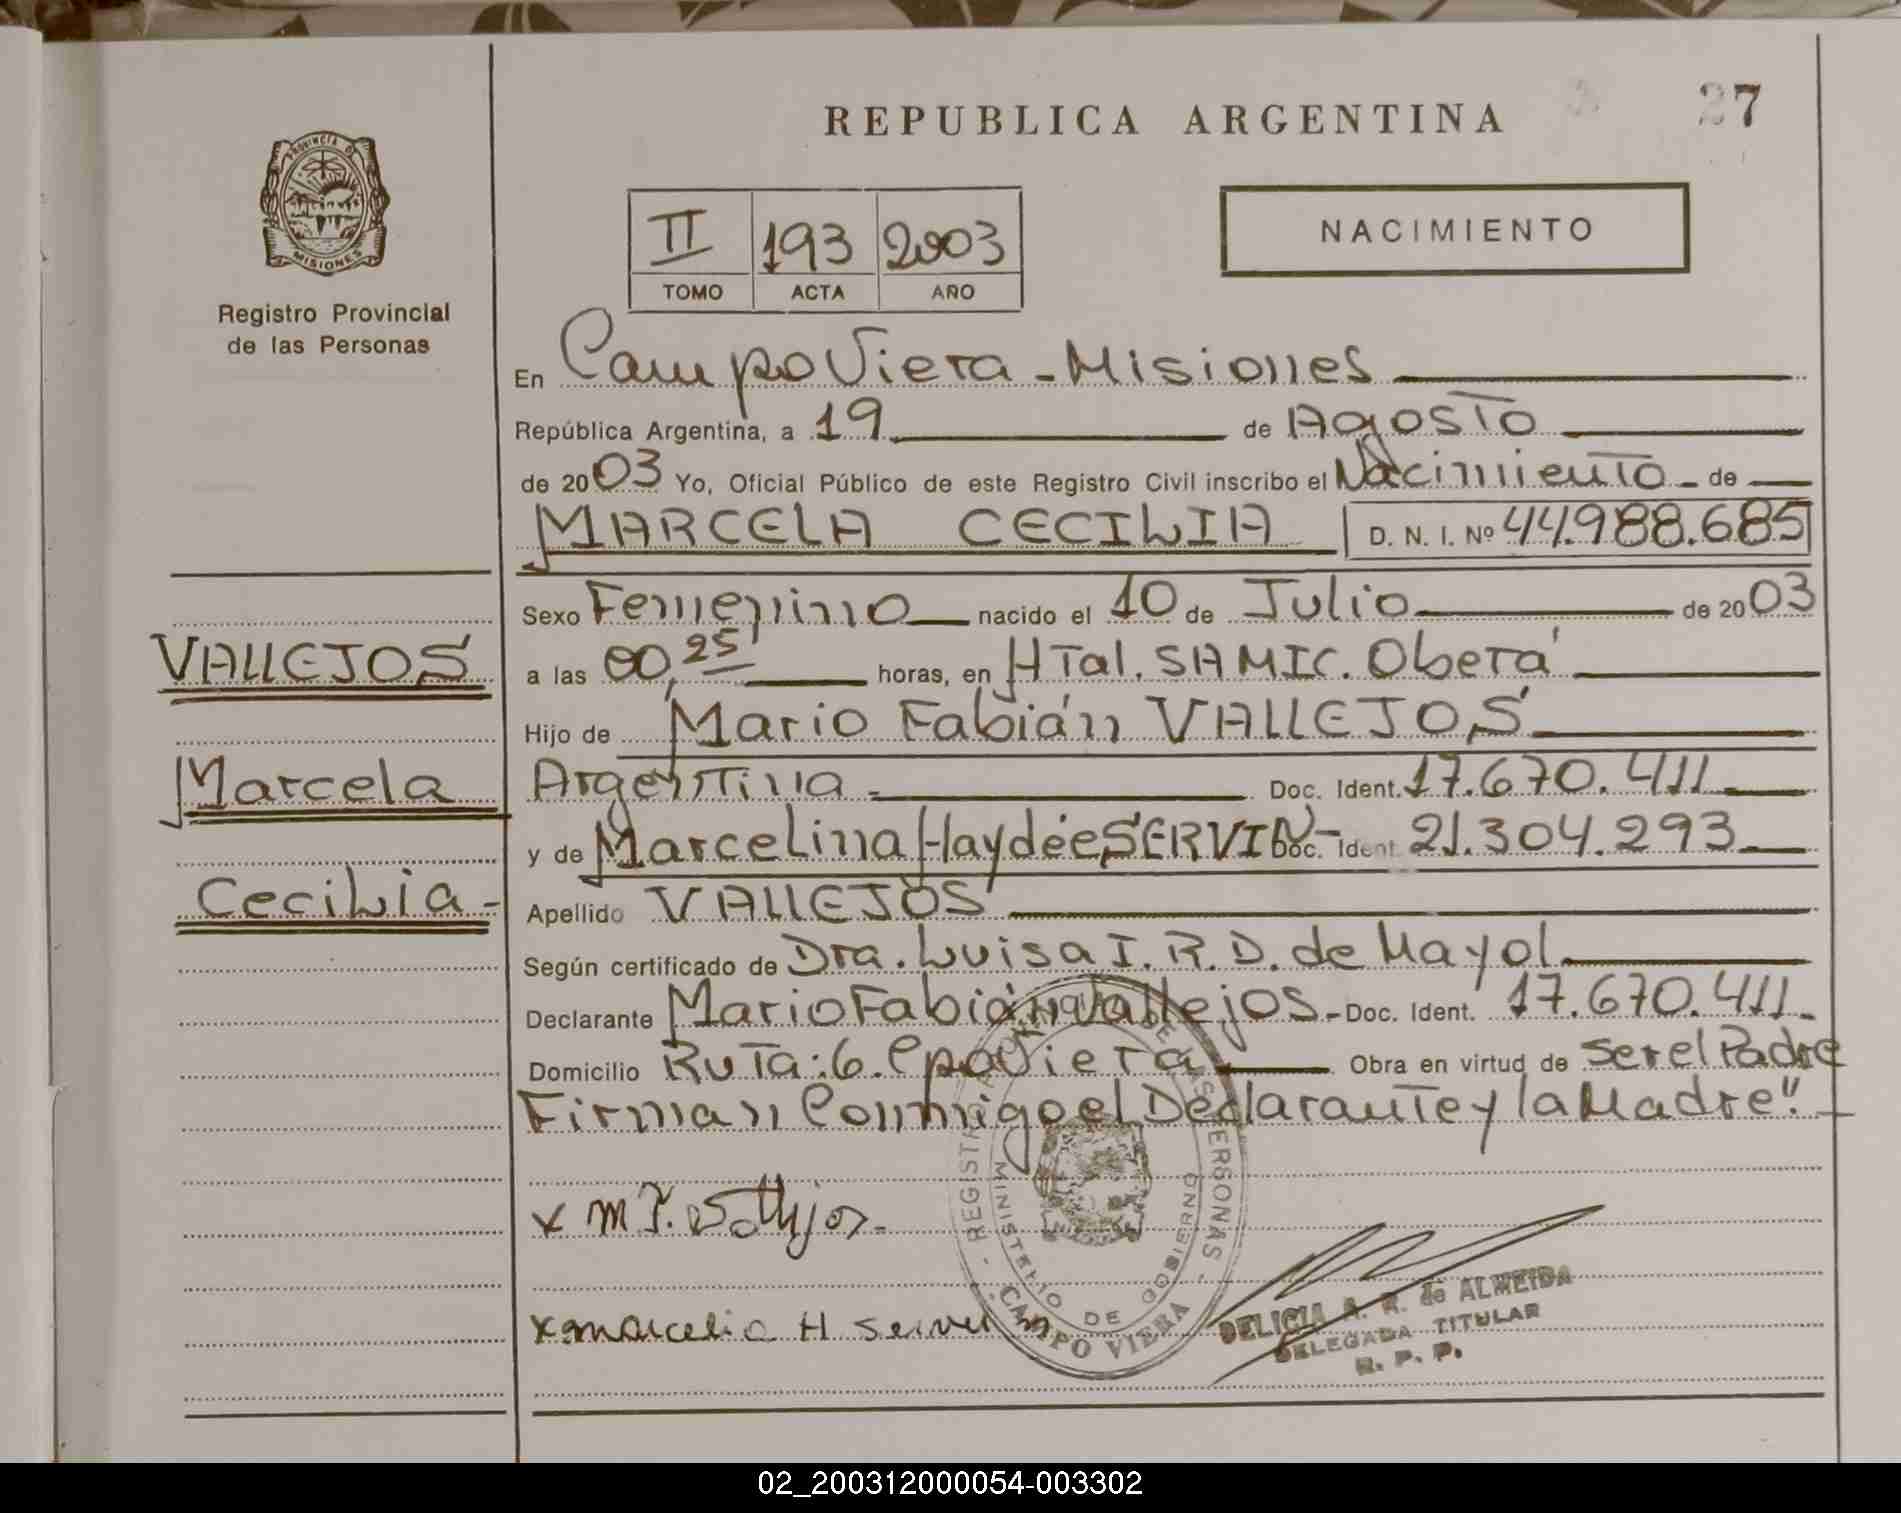 REPUBLICA ARGENTINA
27
PROVINCIA DE
MISIONES
Registro Provincial
de las Personas
II 193 2003
TOMO ACTA AÑO
NACIMIENTO
En Campo Viera - Misiones
República Argentina, a 19 de Agosto
de 2003 Yo, Oficial Público de este Registro Civil inscribo el Nacimiento - de
MARCELA CECILIA D. N. I. Nº 44.988.685
Sexo Femenino nacido el 10 de Julio de 2003
a las 00,25 horas, en HTal. SAMIC. Oberá
Hijo de Mario Fabián VALLEJOS
Argentina Doc. Ident. 17.670.411
y de Marcelina Haydée SERVIN- Doc. Ident. 21.304.293
Apellido VALLEJOS
Según certificado de Dra. Luisa I. R. D. de Mayol
Declarante Mario Fabián Vallejos.- Doc. Ident. 17.670.411.
Domicilio Ruta: 6. Cpo Viera Obra en virtud de ser el Padre
Firman Conmigo el Declarante y la Madre".-
VALLEJOS
Marcela
Cecilia-
x M F. Vallejos.
x Marcelia H Servin
REGISTRO PROVINCIAL DE LAS PERSONAS
MINISTERIO DE GOBIERNO
- CAMPO VIERA -
DELICIA A. R. de ALMEIDA
DELEGADA TITULAR
R. P. P.
02_200312000054-003302